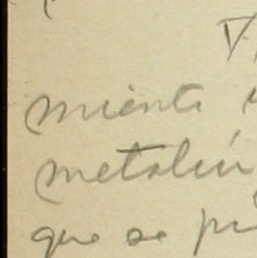 V
miento
metalúr
que se pu